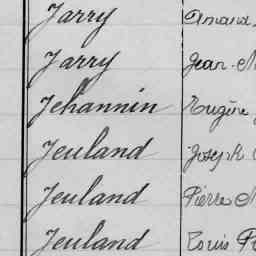 Jarry Amand
Jarry Jean
Jehannin Eugène
Jeuland Joseph
Jeuland Pierre M
Jeuland Louis